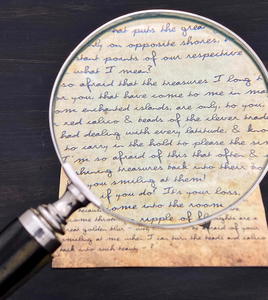 that puts the great
on opposite shores,
stant points of our respective
what I mean?
so afraid that the treasures I long t
or you, that have come to me in ma
om enchanted islands, are only, to you,
red calico & beads of the clever trade
had dealing with every latitude, & kno
to carry in the hold to please the sim
I'm so afraid of this that often &
shining treasures back into their bo
you smiling at them!
if you do? It's your loss,
come into the room
ripple of
smiling at me when I can turn the beads and calico
back into such beauty